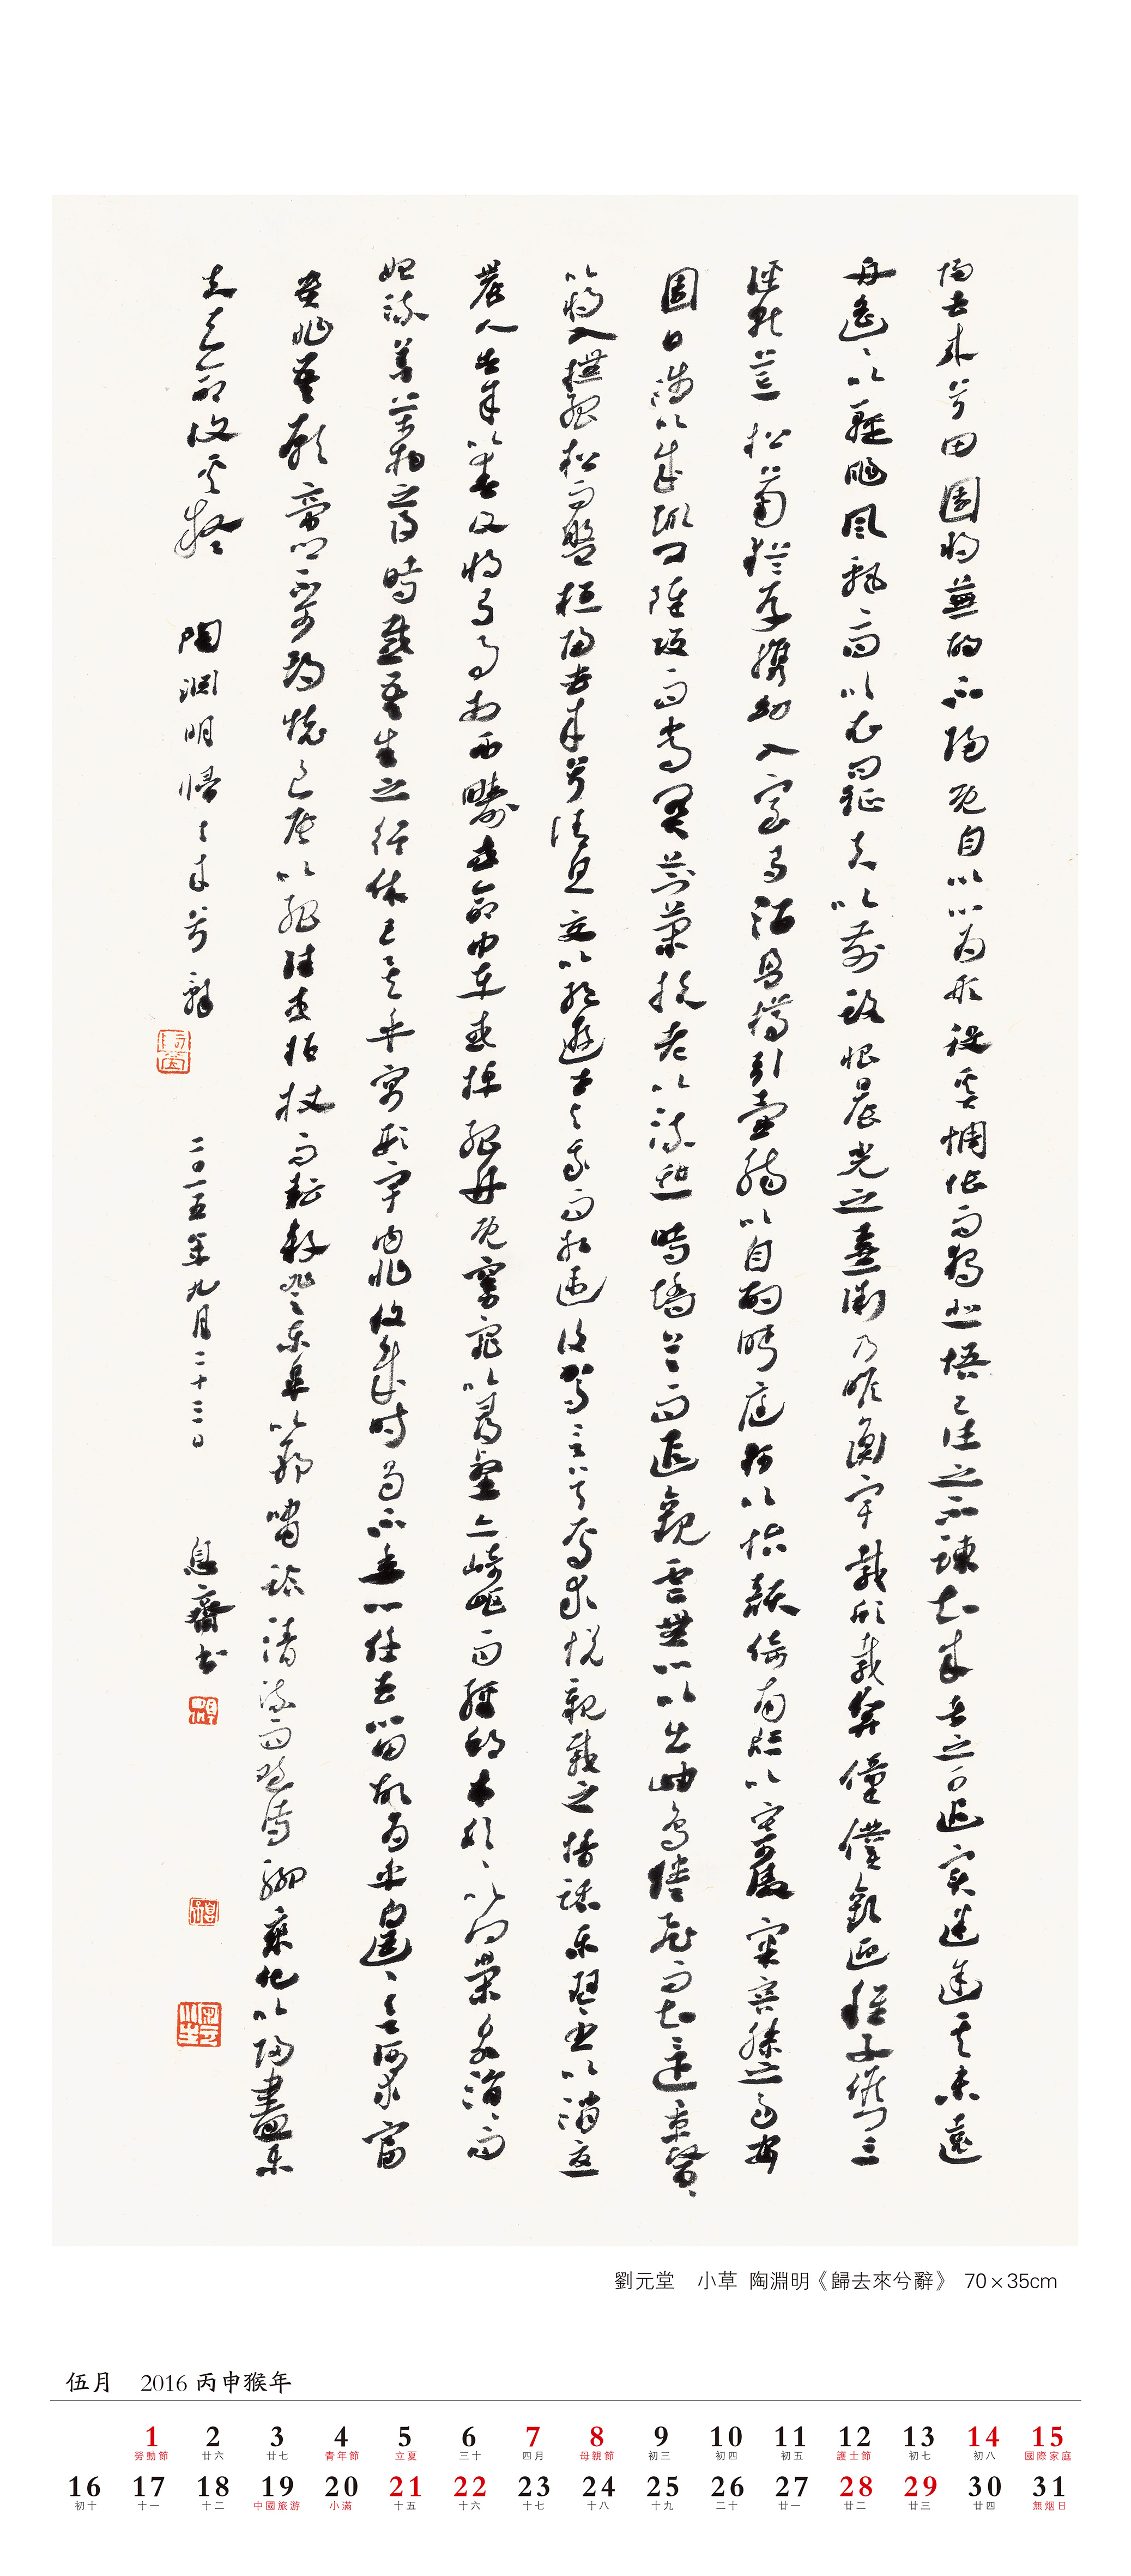 歸去來兮田園將蕪胡不歸既自以心為形役奚惆悵而獨悲悟已往之不諫知來者之可追實迷途其未遠
舟遙〻以輕颺風飄〻而吹衣問征夫以前路恨晨光之熹微乃瞻衡宇載欣載奔僮僕歡迎稚子候門三
徑就荒松菊猶存攜幼入室有酒盈樽引壺觴以自酌眄庭柯以怡顏倚南窗以寄傲審容膝之易安
園日涉以成趣門雖設而常關策扶老以流憩時矯首而遐觀雲無心以出岫鳥倦飛而知還景翳〻
以將入撫孤松而盤桓歸去來兮請息交以絕遊世與我而相違復駕言兮焉求悅親戚之情話樂琴書以消憂
農人告余以春及將有事於西疇或命巾車或棹孤舟既窈窕以尋壑亦崎嶇而經丘木欣〻以向榮泉涓〻而
始流善萬物之得時感吾生之行休已矣乎寓形宇內復幾時曷不委心任去留胡為乎遑〻欲何之富
貴非吾願帝鄉不可期懷良辰以孤往或植杖而耘耔登東皋以舒嘯臨清流而賦詩聊乘化以歸盡樂
夫天命復奚疑 陶淵明歸去來兮辭 二〇一五年九月二十三日 息齋書
劉元堂 小草 陶淵明《歸去來兮辭》 70×35cm
伍月 2016 丙申猴年
1 2 3 4 5 6 7 8 9 10 11 12 13 14 15
勞動節 廿六 廿七 青年節 立夏 三十 四月 母親節 初三 初四 初五 護士節 初七 初八 國際家庭
16 17 18 19 20 21 22 23 24 25 26 27 28 29 30 31
初十 十一 十二 中國旅游 小滿 十五 十六 十七 十八 十九 二十 廿一 廿二 廿三 廿四 無烟日